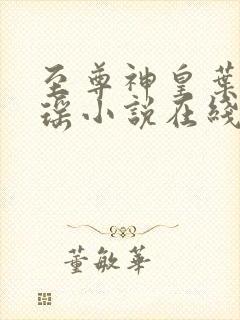 至尊神皇葉
瑶小說在綫
董敏華